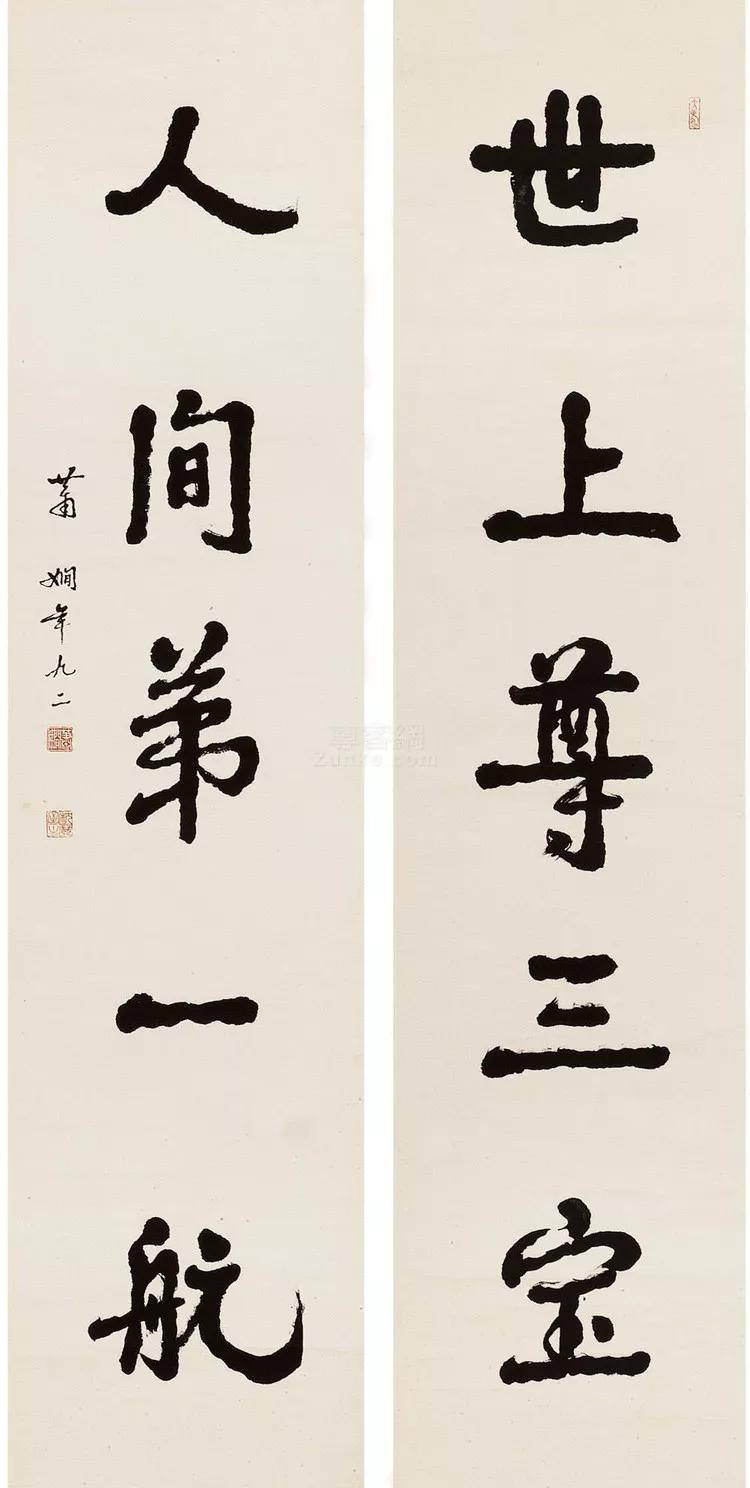 世上尊三宝
人间第一航
萧娴年九二
尊客網
Zunke.com